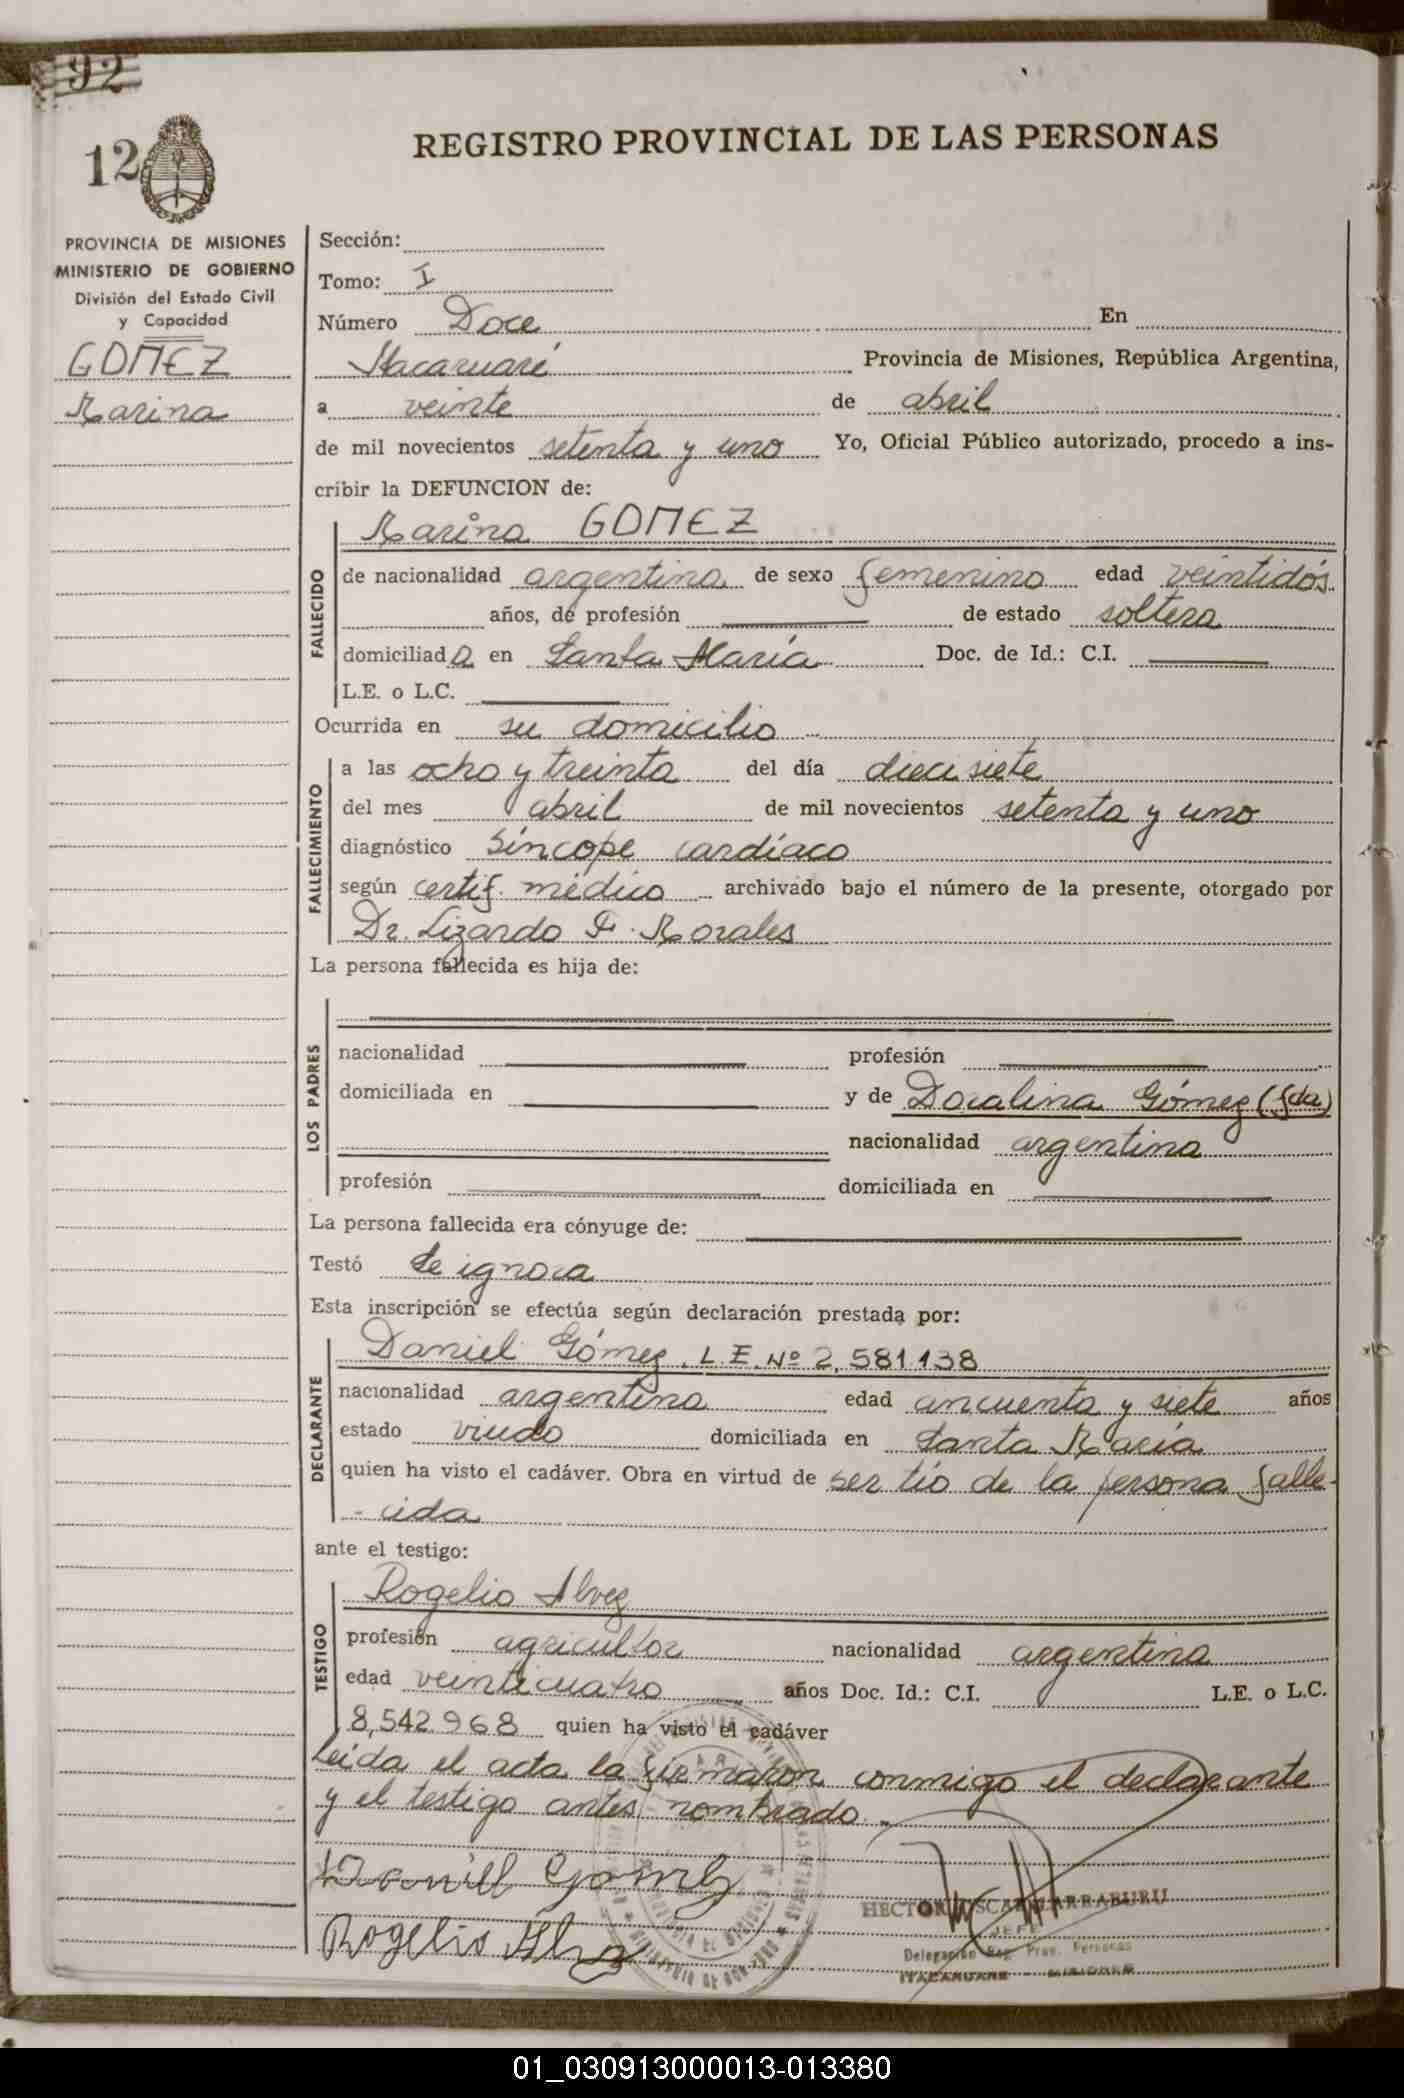 92
12
REGISTRO PROVINCIAL DE LAS PERSONAS
PROVINCIA DE MISIONES
MINISTERIO DE GOBIERNO
División del Estado Civil
y Capacidad
GOMEZ
Marina
Sección:
Tomo: I
Número Doce En
Itacaruaré Provincia de Misiones, República Argentina,
a veinte de abril
de mil novecientos setenta y uno Yo, Oficial Público autorizado, procedo a ins-
cribir la DEFUNCION de:
FALLECIDO
Marina GOMEZ
de nacionalidad argentina de sexo femenino edad veintidós
años, de profesión de estado soltera
domiciliada en Santa María Doc. de Id.: C.I.
L.E. o L.C.
Ocurrida en su domicilio
FALLECIMIENTO
a las ocho y treinta del día diecisiete
del mes abril de mil novecientos setenta y uno
diagnóstico Síncope cardíaco
según certif. médico archivado bajo el número de la presente, otorgado por
Dr. Lizardo F. Morales
La persona fallecida es hija de:
LOS PADRES
nacionalidad profesión
domiciliada en y de Doralina Gómez (fda)
nacionalidad argentina
profesión domiciliada en
La persona fallecida era cónyuge de:
Testó Se ignora
Esta inscripción se efectúa según declaración prestada por:
DECLARANTE
Daniel Gómez. L.E. Nº 2,581.138
nacionalidad argentina edad cincuenta y siete años
estado viudo domiciliada en Santa María
quien ha visto el cadáver. Obra en virtud de ser tío de la persona falle-
- cida
ante el testigo:
TESTIGO
Rogelio Alvez
profesión agricultor nacionalidad argentina
edad veinticuatro años Doc. Id.: C.I. L.E. o L.C.
8,542.968 quien ha visto el cadáver
Leída el acta la firmaron conmigo el declarante
y el testigo antes nombrado.-
Daniel Gomez
Rogelio Alvez
HECTOR OSCAR LARRABURU
JEFE
Delegación Reg. Prov. Personas
ITACARUARE MISIONES
01_030913000013-013380